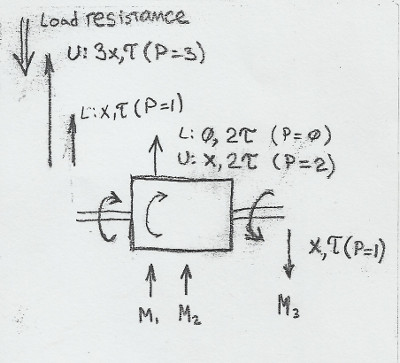 Load resistance
U: 3x,τ (P=3)
L: x,τ (P=1)
L: ∅, 2τ (P=∅)
U: x, 2τ (P=2)
x,τ (P=1)
M₁ M₂
M₃